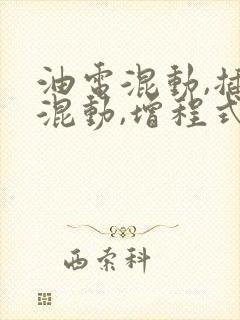 油電混動,插
混動,增程式
西索科